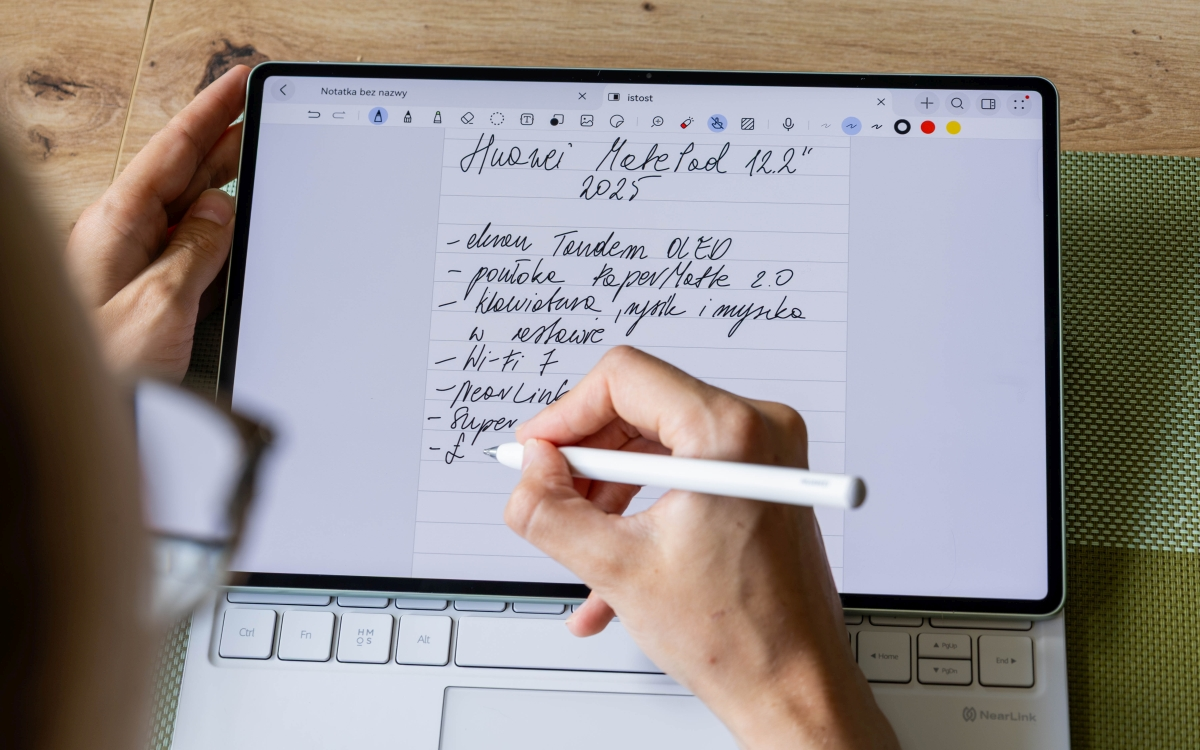 Notatka bez nazwy
istost
Huawei MatePad 12.2"
2025
- ekran Tandem OLED
- powłoka PaperMatte 2.0
- klawiatura, rysik i myszka
w zestawie
- Wi-Fi 7
- NearLink
- Super
- Ł
Ctrl
Fn
HM
OS
Alt
◄ Home
▲ PgUp
▼ PgDn
End ►
NearLink